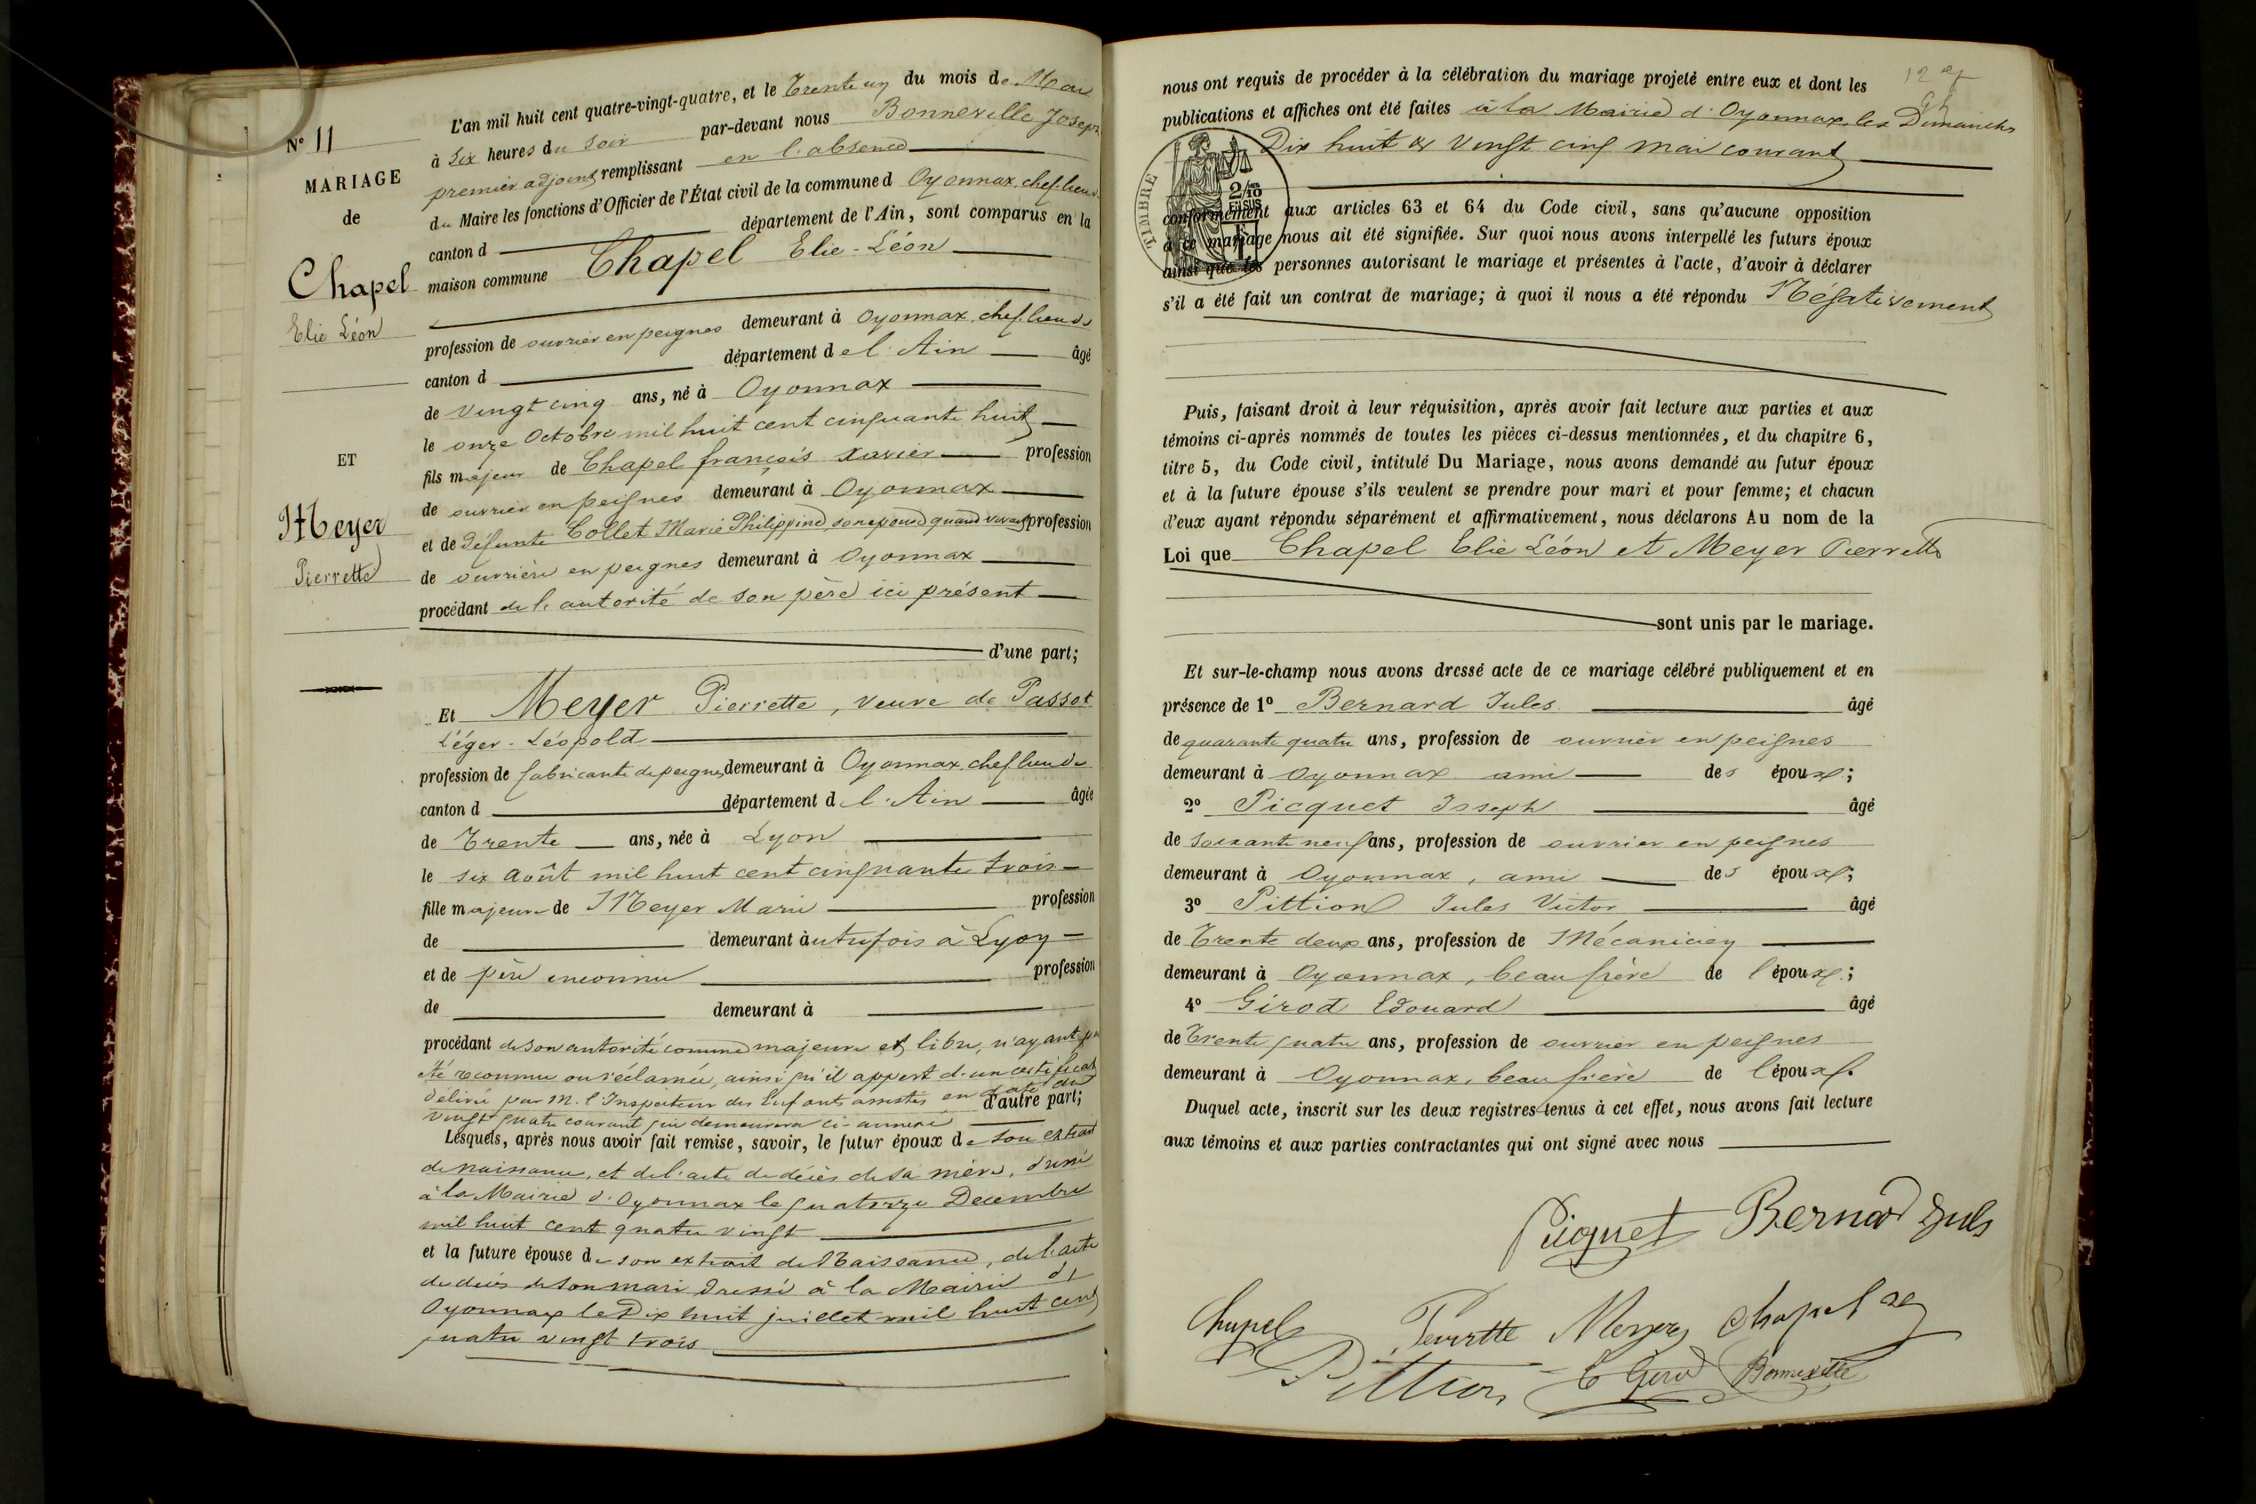 N° 11
MARIAGE
de
Chapel
Elie Léon
ET
Meyer
Pierrette
L'an mil huit cent quatre-vingt-quatre, et le Trente un du mois de Mai
à six heures du soir par-devant nous Bonneville Joseph
premier adjoint remplissant en l'absence
du Maire les fonctions d'Officier de l'État civil de la commune d Oyonnax, chef-lieu de
canton d département de l'Ain, sont comparus en la
maison commune Chapel Elie-Léon
profession de ouvrier en peignes demeurant à Oyonnax, chef-lieu de
canton d département de l'Ain âgé
de vingt cinq ans, né à Oyonnax
le onze Octobre mil huit cent cinquante huit
fils majeur de Chapel françois xavier profession
de ouvrier en peignes demeurant à Oyonnax
et de défunte Collet Marie Philippine, son épouse quand vivait profession
de ouvrière en peignes demeurant à Oyonnax
procédant de l'autorité de son père ici présent
d'une part;
Et Meyer Pierrette, veuve de Passot
Léger-Léopold
profession de fabricante de peignes demeurant à Oyonnax, chef-lieu de
canton d département de l'Ain âgée
de Trente ans, née à Lyon
le six Août mil huit cent cinquante trois
fille majeure de Meyer Marie profession
de demeurant autrefois à Lyon
et de père inconnu profession
de demeurant à
procédant de son autorité comme majeure et libre, n'ayant pas
été reconnue ou réclamée, ainsi qu'il appert d'un certificat
délivré par M. l'Inspecteur des Enfants assistés en date du
vingt quatre courant qui demeurera ci-annexé d'autre part;
Lesquels, après nous avoir fait remise, savoir, le futur époux de son extrait
de naissance, et de l'acte de décès de sa mère, dressé
à la Mairie d'Oyonnax le quatorze Décembre
mil huit cent quatre vingt
et la future épouse de son extrait de Naissance, de l'acte
de décès de son mari dressé à la Mairie d'
Oyonnax le Dix huit juillet mil huit cent
quatre vingt trois
nous ont requis de procéder à la célébration du mariage projeté entre eux et dont les
publications et affiches ont été faites à la Mairie d'Oyonnax, les Dimanches
Dix huit et vingt cinq mai courant
TIMBRE
2/10
EN SUS
conformément aux articles 63 et 64 du Code civil, sans qu'aucune opposition
à ce mariage nous ait été signifiée. Sur quoi nous avons interpellé les futurs époux
ainsi que les personnes autorisant le mariage et présentes à l'acte, d'avoir à déclarer
s'il a été fait un contrat de mariage; à quoi il nous a été répondu Négativement
Puis, faisant droit à leur réquisition, après avoir fait lecture aux parties et aux
témoins ci-après nommés de toutes les pièces ci-dessus mentionnées, et du chapitre 6,
titre 5, du Code civil, intitulé Du Mariage, nous avons demandé au futur époux
et à la future épouse s'ils veulent se prendre pour mari et pour femme; et chacun
d'eux ayant répondu séparément et affirmativement, nous déclarons Au nom de la
Loi que Chapel Elie Léon et Meyer Pierrette
sont unis par le mariage.
Et sur-le-champ nous avons dressé acte de ce mariage célébré publiquement et en
présence de 1° Bernard Jules âgé
de quarante quatre ans, profession de ouvrier en peignes
demeurant à Oyonnax ami des époux;
2° Picquet Joseph âgé
de soixante neuf ans, profession de ouvrier en peignes
demeurant à Oyonnax, ami des époux;
3° Pittion Jules Victor âgé
de Trente deux ans, profession de Mécanicien
demeurant à Oyonnax, beau frère de l'époux;
4° Girod Edouard âgé
de Trente quatre ans, profession de ouvrier en peignes
demeurant à Oyonnax, beau frère de l'époux.
Duquel acte, inscrit sur les deux registres tenus à cet effet, nous avons fait lecture
aux témoins et aux parties contractantes qui ont signé avec nous
Picquet Bernard Juls
Chapel Pierrette Meyer Chapel
Pittion E Girod Bonneville